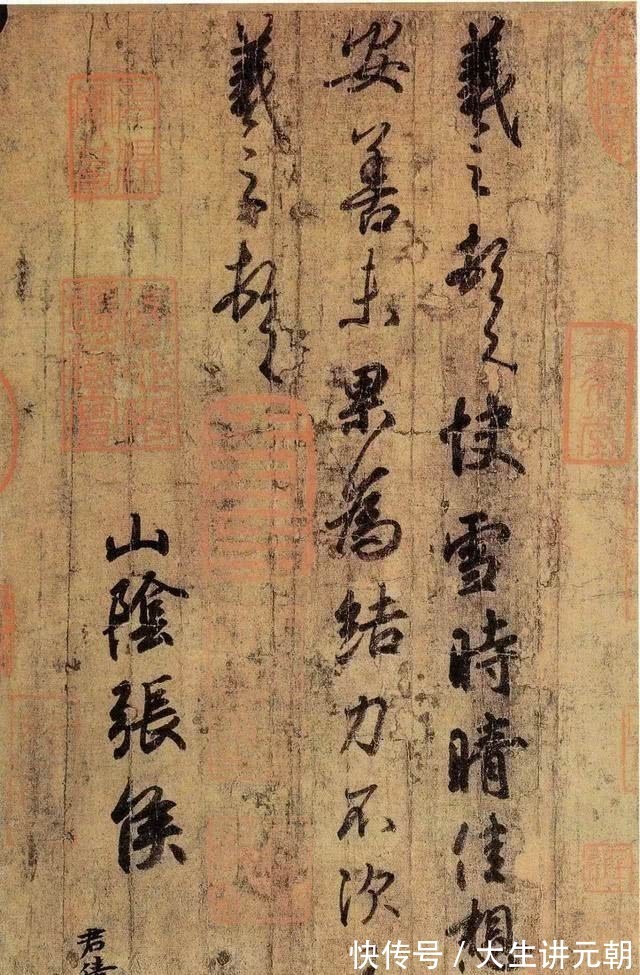 羲之頓首快雪時晴佳想
安善未果為結力不次
羲之頓首
山陰張侯
君倩
快传号/大生讲元朝